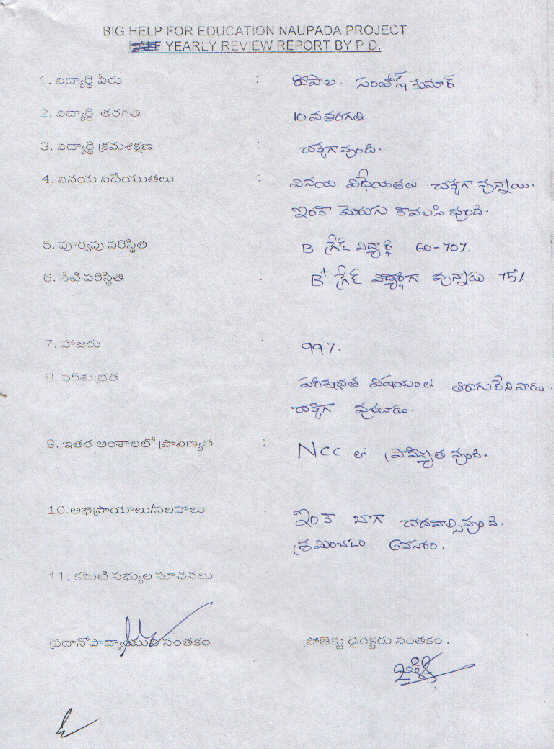 BIG HELP FOR EDUCATION NAUPADA PROJECT
YEARLY REVIEW REPORT BY P.D.
1. విద్యార్థి పేరు :
2. విద్యార్థి తరగతి : 10వ తరగతి
3. విద్యార్థి క్రమశిక్షణ : చక్కగా వుంది.
4. వినయ విధేయతలు : వినయ విధేయతలు చక్కగా వున్నాయి.
ఇంకా మెరుగు కావలసి వుంది.
5. పూర్వపు పరిస్థితి : B గ్రేడ్ విద్యార్థి 60-70%
6. నేటి పరిస్థితి : B+ గ్రేడ్ విద్యార్థిగా వున్నాడు 75%
7. హాజరు 99%.
8. పరిశుభ్రత పరిశుభ్రత విషయంలో
చక్కగా
9. ఇతర అంశాలలో ప్రావీణ్యత : NCC లో వుంది.
10. అభిప్రాయాలు/సలహాలు ఇంకా బాగా చదవాల్సి వుంది.
శ్రమించటం అవసరం.
11. కమిటి సభ్యుల సూచనలు
ప్రధానోపాధ్యాయుని సంతకం ప్రాజెక్టు డైరెక్టరు సంతకం.